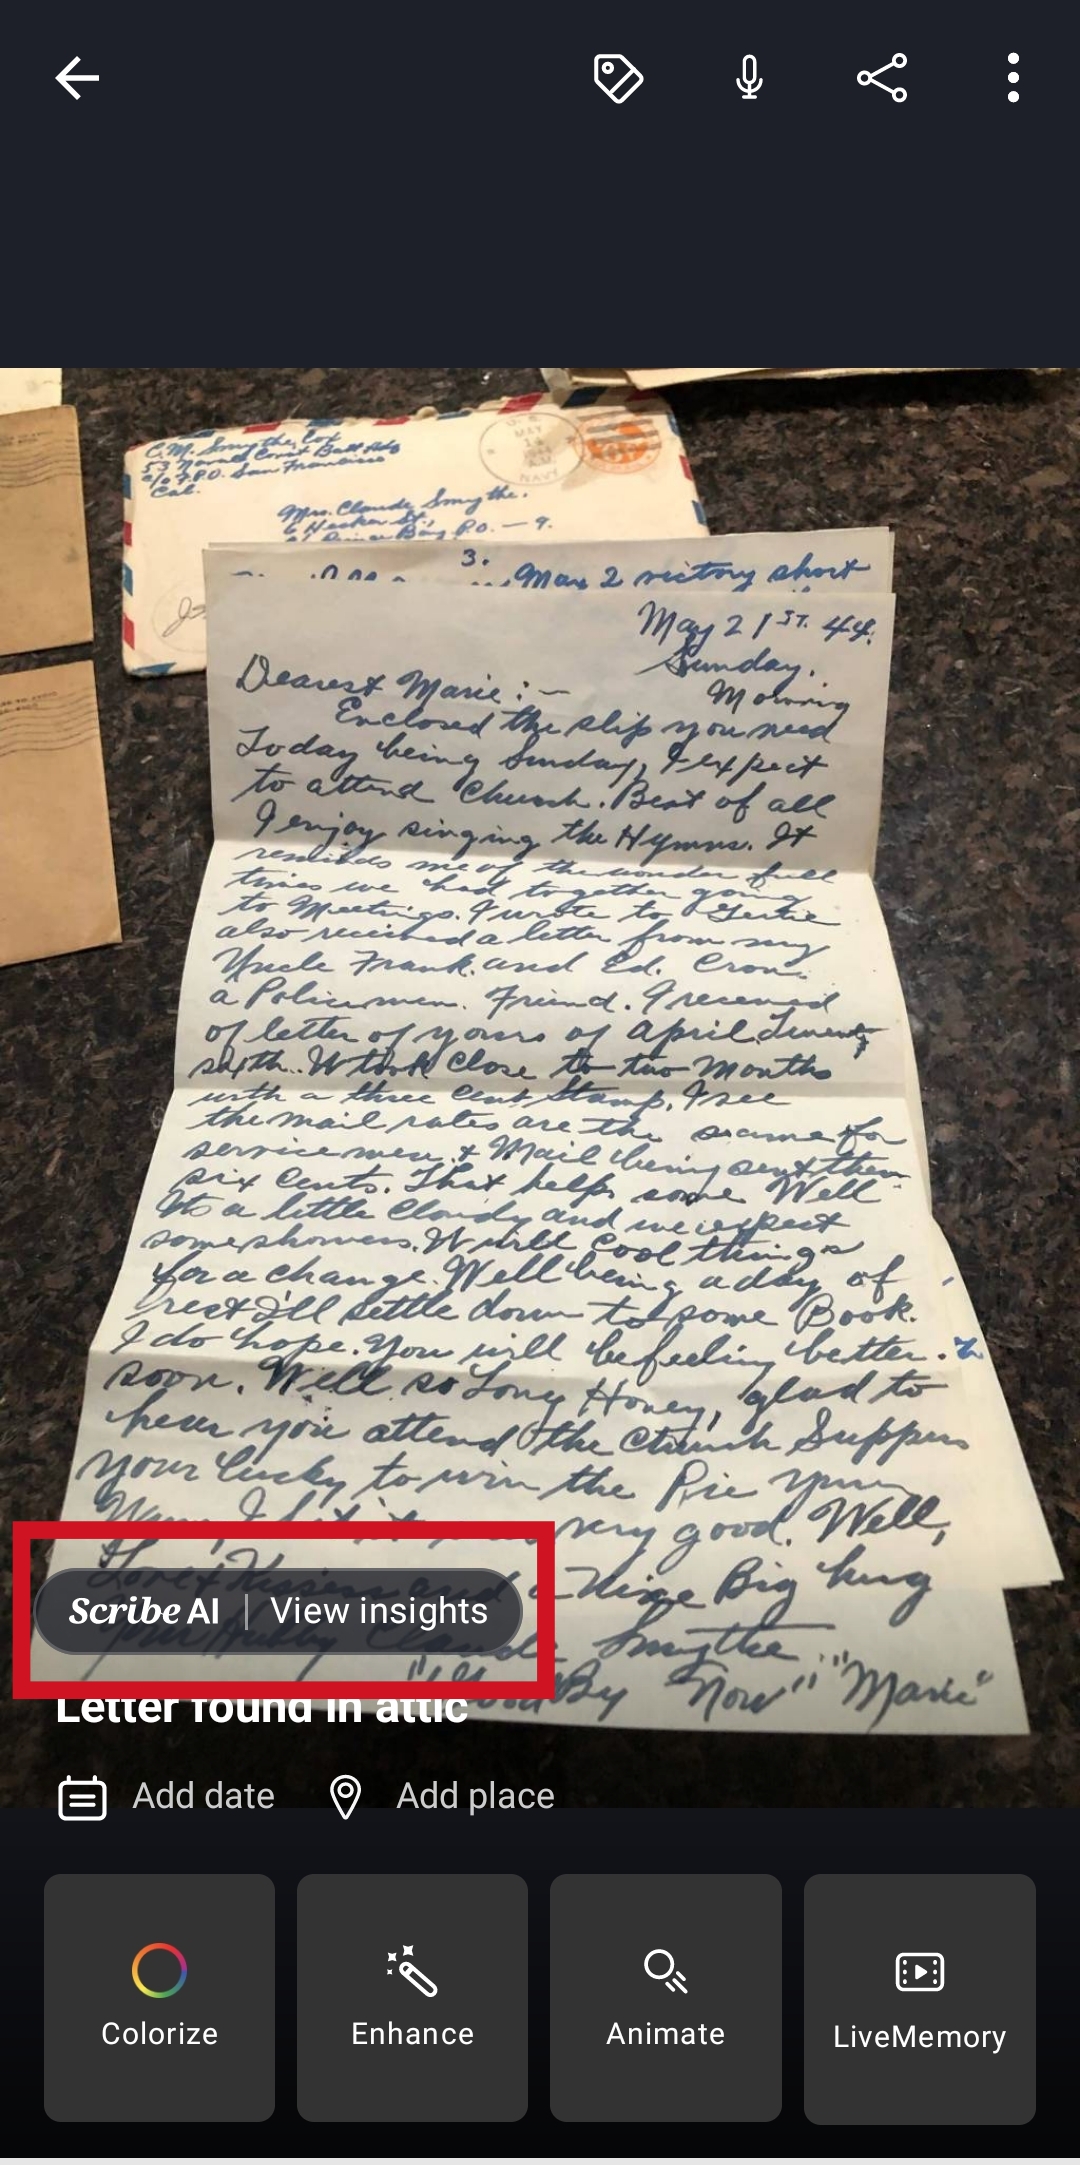 C. M. Smythe, Cox
53 Naval Const Batt Hdq
c/o F.P.O. San Francisco
Cal.
MAY
NAVY
Mrs. Claude Smythe.
6 Hecker St.,
Prince Bay P.O. — 9.
3.
May 2 victory short
May 21ST. 44.
Sunday.
Morning
Dearest Marie:—
Enclosed the slip you need
Today being Sunday, I expect
to attend Church. Best of all
I enjoy singing the Hymns. It
reminds me of the wonder full
times we had together going
to Meetings. I wrote to Gertie
also received a letter from my
Uncle Frank. and Ed. Cron.
a Policemen. Friend. I received
of letter of yours of April Twenty
sixth. It took close to two Months
with a three Cent Stamp, I see
the mail rates are the same for
service men. & Mail being sent them
six cents. That helps some Well
Its a little Cloudy and we expect
some showers. It will cool things
for a change. Well being a day of
rest I'll settle down to some Book.
I do hope. you will be feeling better.
soon. Well so Long Honey, glad to
hear you attend the Church Suppers
your lucky to win the Pie yum
very good. Well,
Love & Kisses and a Nice Big hug
your Hubby Claude Smythe
"Good By Now" "Marie"
Scribe AI | View insights
Letter found in attic
Add date Add place
Colorize Enhance Animate LiveMemory